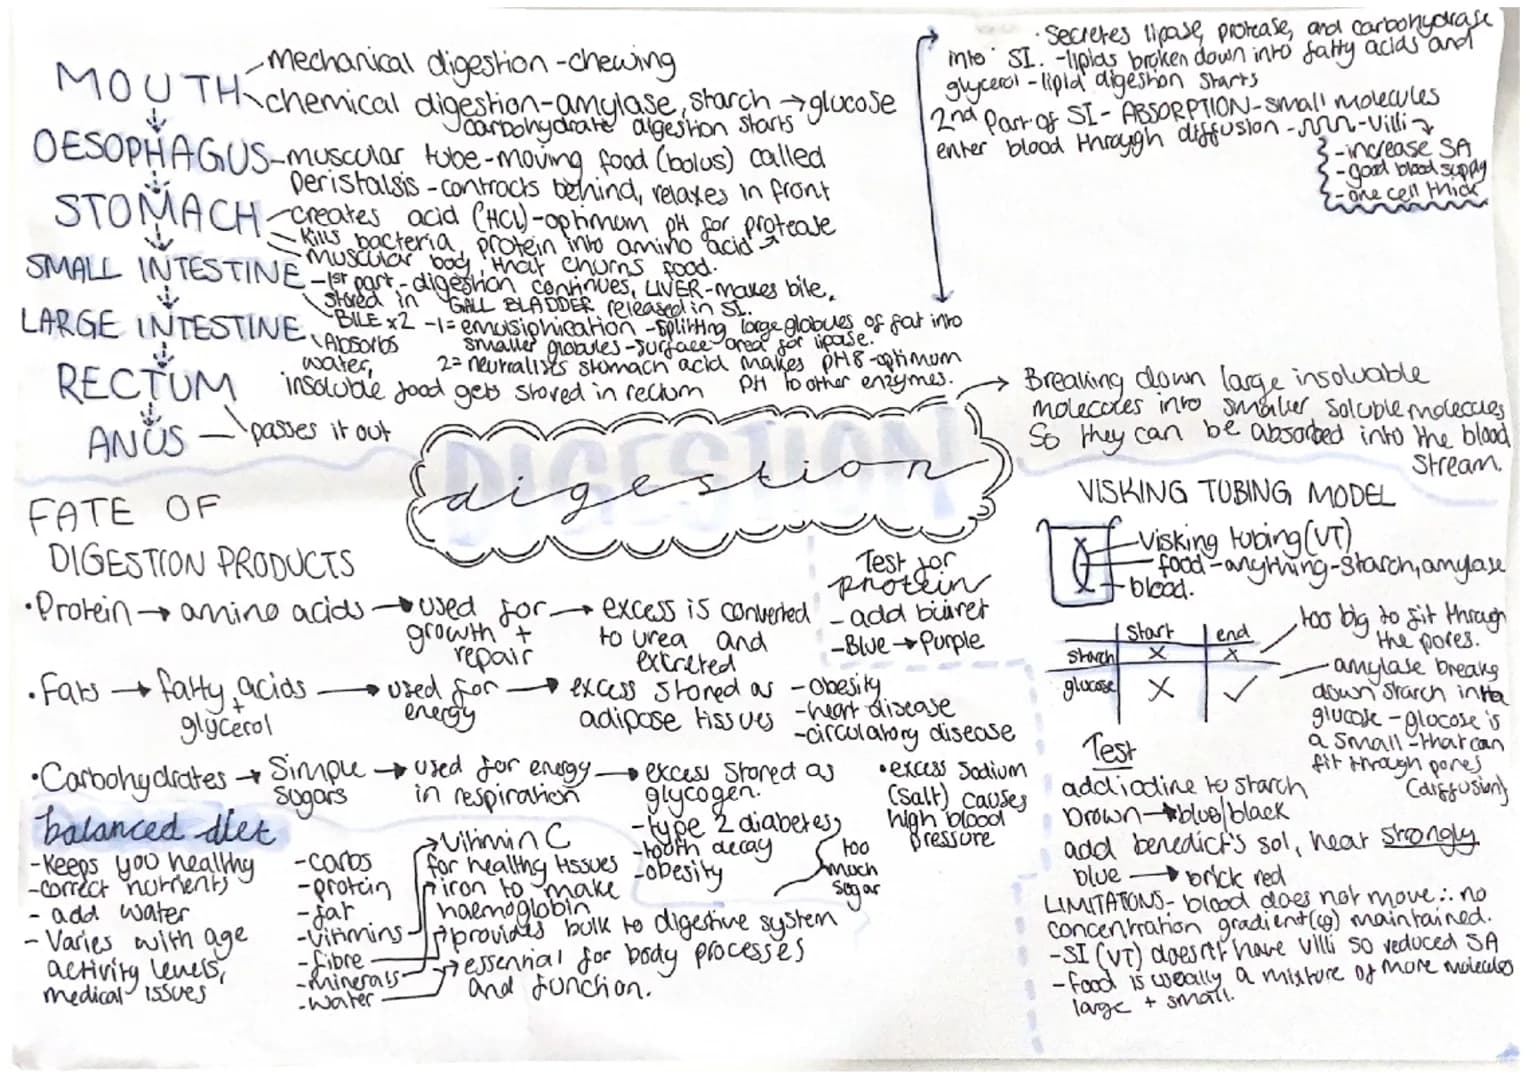 MOUTH
-mechanical digestion -chewing
chemical digestion-amylase, starch → glucose
carbohydrate digestion starts
OESOPHAGUS -muscular tube-moving food (bolus) called
peristalsis - contracts behind, relaxes in front
STOMACH -creates acid (HCl)-optimum pH for protease
- kills bacteria, protein into amino acid
muscular body, that churns food.
SMALL INTESTINE -1st part - digestion continues, LIVER-makes bile,
stored in GALL BLADDER released in SI.
BILE x2 -1= emulsiphication -splitting large globules of fat into
smaller globules -surface area for lipase.
2= neutralises stomach acid makes pH8-optimum
pH to other enzymes.
LARGE INTESTINE
Absorbs
water,
insoluble food gets stored in rectum
RECTUM
passes it out
ANUS
· Secretes lipase, protease, and carbohydrase
into SI. -lipids broken down into fatty acids and
glycerol - lipid digestion starts
2nd Part of SI- ABSORPTION-small molecules
enter blood through diffusion - -Villi
-increase SA
-good blood supply
-one cell thick
DIGESTION
digestion
→ Breaking down large insoluable
molecules into smaller soluble molecules
So they can be absorbed into the blood
stream.
FATE OF
DIGESTION PRODUCTS
·Protein → amino acids → used for → excess is converted
growth + to urea and
repair excreted
·Fats → fatty acids → used for → excess stored as
+ energy adipose tissues
glycerol
-obesity
-heart disease
-circulatory disease
·Carbohydrates → Simple → used for energy → excess stored as
sugars in respiration glycogen.
-type 2 diabetes
-tooth decay
-obesity
too
much
sugar
•excess sodium
(salt) causes
high blood
pressure
Test for
protein
- add biuret
-Blue → Purple
balanced diet
-Keeps you healthy
-correct nutrients
- add water
- Varies with age
activity levels,
medical issues
-carbs
-protein
-fat
-vitmins
-fibre
-minerals
-water
→ Vitimin C
for healthy tissues
iron to make
haemoglobin
provides bulk to digestive system
→ essential for body processes
and function.
VISKING TUBING MODEL
Visking tubing (VT)
food -anything-starch, amylase
blood.
start end
starch X X
glucose X ✓
too big to fit through
the pores.
- amylase breaks
down starch into
glucose - glucose is
a small -that can
fit through pores
(diffusion)
Test
add iodine to starch
brown → blue/black
add benedict's sol, heat strongly
blue → brick red
LIMITATIONS- blood does not move ∴ no
concentration gradient (cg) maintained.
-SI (VT) doesn't have villi so reduced SA
-food is usually a mixture of more molecules
large + small.